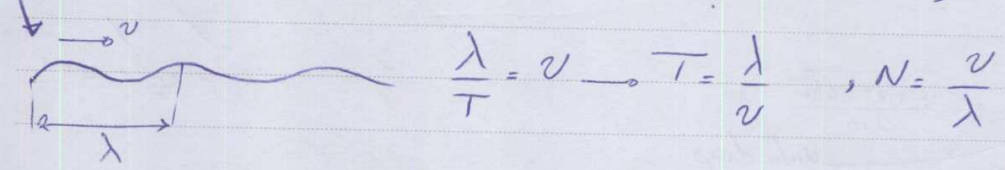 v
λ/T = v → T = λ/v , N = v/λ
λ